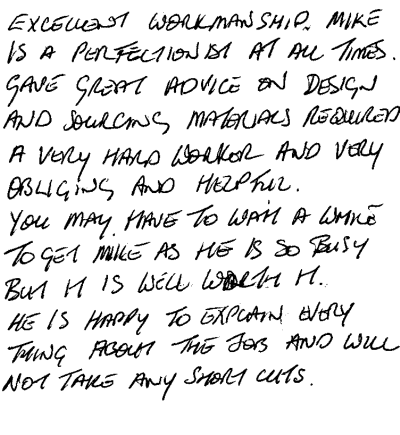 EXCELLENT WORKMANSHIP. MIKE
IS A PERFECTIONIST AT ALL TIMES.
GAVE GREAT ADVICE ON DESIGN
AND SOURCING MATERIALS REQUIRED
A VERY HARD WORKER AND VERY
OBLIGING AND HELPFUL.
YOU MAY HAVE TO WAIT A WHILE
TO GET MIKE AS HE IS SO BUSY
BUT IT IS WELL WORTH IT.
HE IS HAPPY TO EXPLAIN EVERY
THING ABOUT THE JOB AND WILL
NOT TAKE ANY SHORT CUTS.